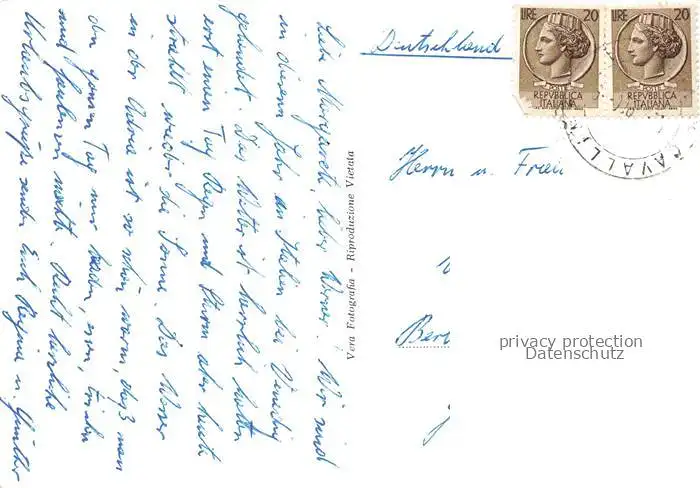 Liebe Margaret, lieber Werner. Wir sind
in diesem Jahr in Italien bei Venedig
gelandet. Das Wetter ist herrlich hatten
erst einen Tag Regen und Sturm aber heute
strahlt wieder die Sonne. Das Wasser
in der Adria ist so schön warm, daß man
den ganzen Tag nur baden, essen, trinken
und faulenzen möchte. Recht herzliche
Urlaubsgrüße senden Euch Regina u. Günther
Vera Fotografia - Riproduzione Vietata
Deutschland
LIRE 20
POSTE
REPVBBLICA
ITALIANA
LIRE 20
POSTE
REPVBBLICA
ITALIANA
CAVALLI
Herrn u. Frau
Ber
privacy protection
Datenschutz